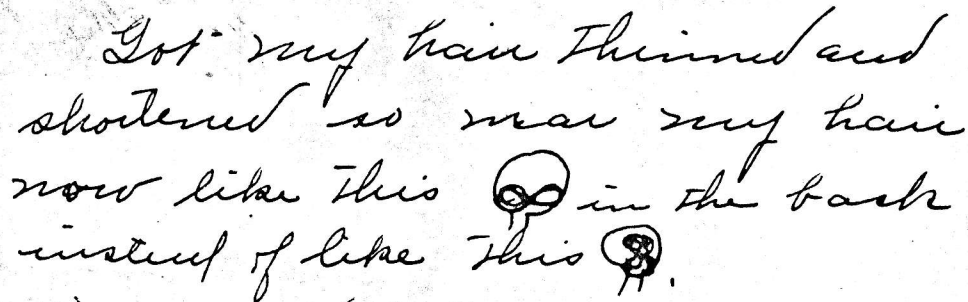 Got my hair thinned and
shortened so wear my hair
now like this in the back
instead of like this.